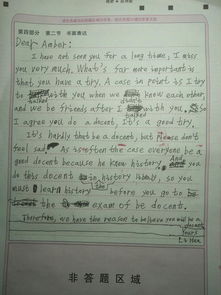 第四部分 第二节 书面表达
Dear Amber:
I have not seen you for a long time, I miss
you very much. What's far more important is
that you have a try. A case in point is I try
to talked with you when we knew each other,
and we be friends after I talked with you. So
I agree you do a docent. It's a good try.
It's hardly that be a docent, but Please don't
feel sad. As is often the case everyone be a
good docent because he know history. And you
do this docent in history, so you
must learn history before you go to
the exam of be docent.
Therefore, we have the reason to believe you will be a
docent
Yours
Li Hua
非答题区域